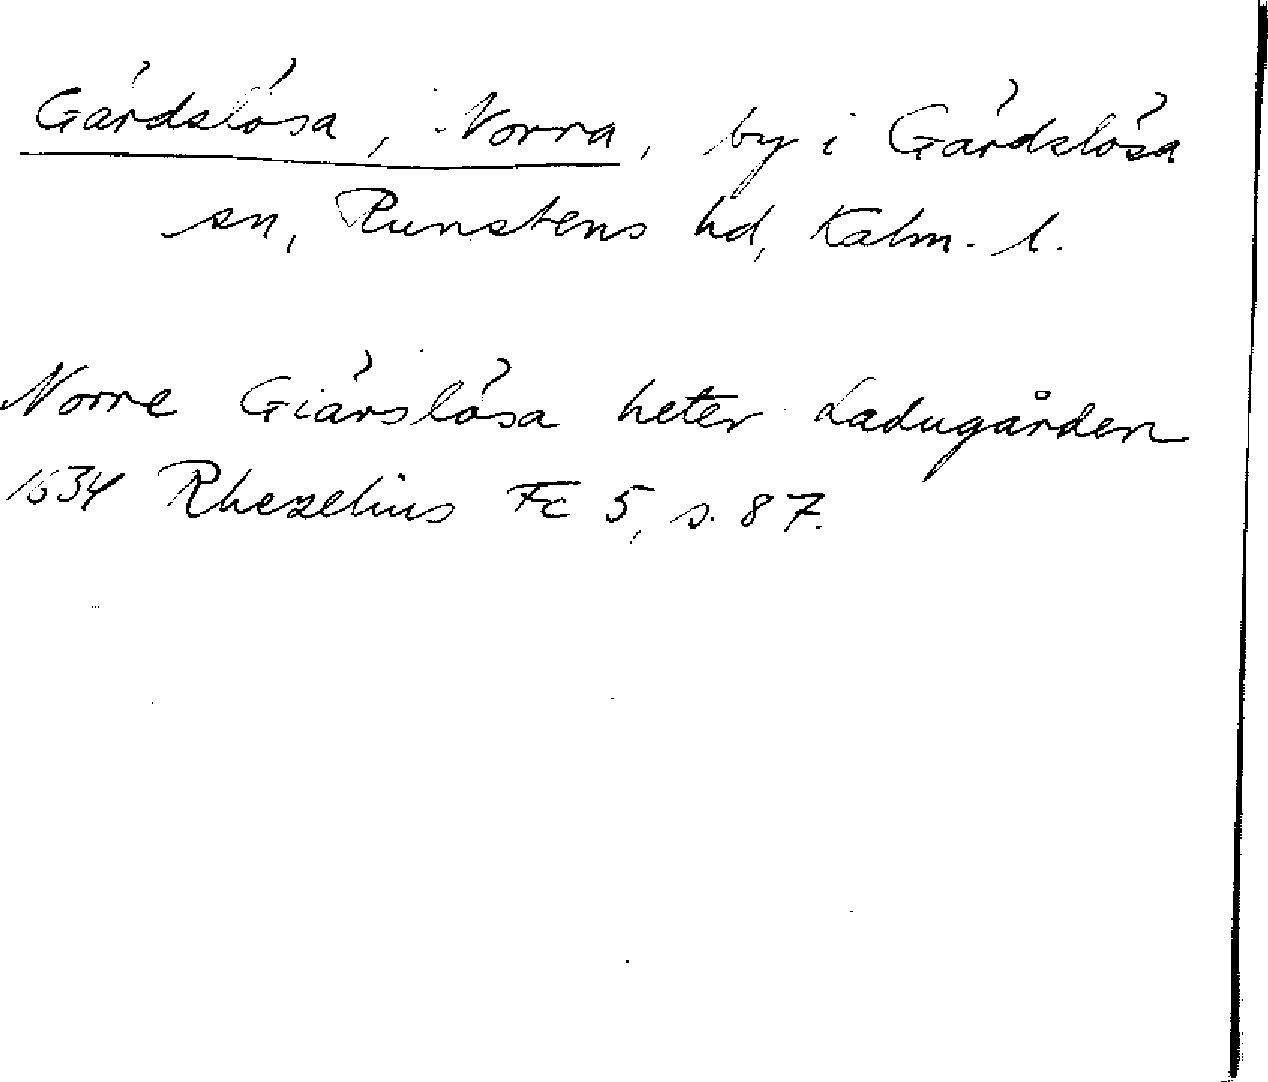 Gärdslösa, Norra, by i Gärdslösa
sn, Runstens hd, Kalm. l.
Norre Giärslösa heter Ladugården
1634 Rhezelius Fc 5, s. 87.